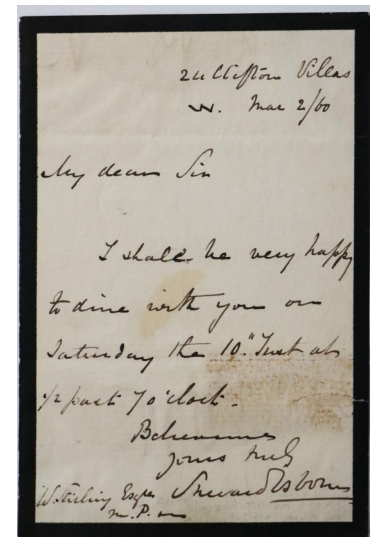 24 Clifton Villas
W. Mar 2/60
My dear Sir
I shall be very happy
to dine with you on
Saturday the 10." Inst at
1/2 past 7 o'clock.
Believe me
yours truly
Sherard Osborn
W. Stirling Esqre
M.P.